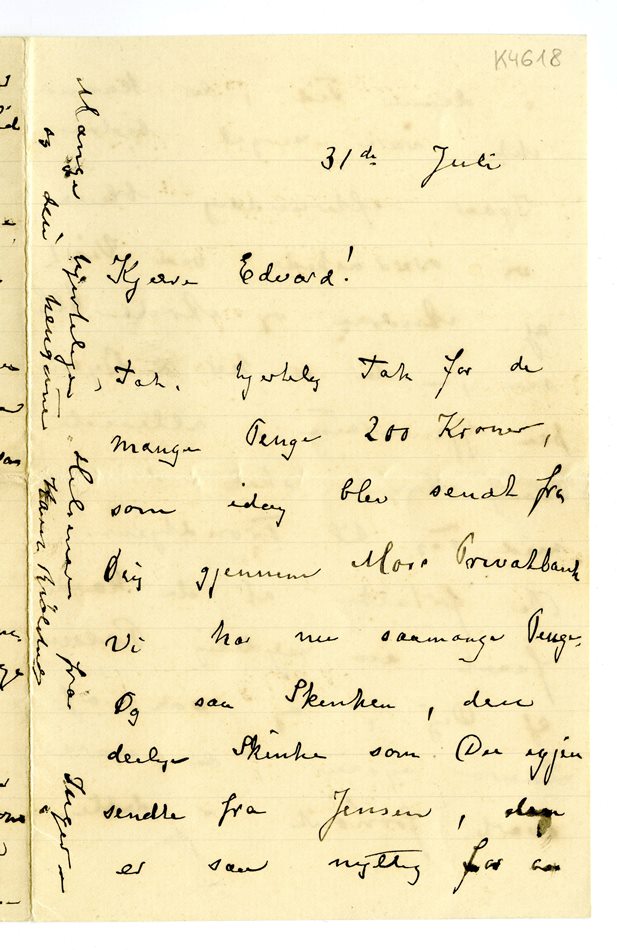 K4618
31de Juli
Kjære Edvard!
Tak, hjertelig Tak for de
mange Penge 200 Kroner,
som idag blev sendt fra
Dig gjennem Moss Privatbank
Vi har nu saamange Penge.
Og saa Skinken, den
deilige Skinke som Du igjen
sendte fra Jensen, den
er saa nyttig for os
Mange hjertelige Hilsener fra Inger
og din hengivne